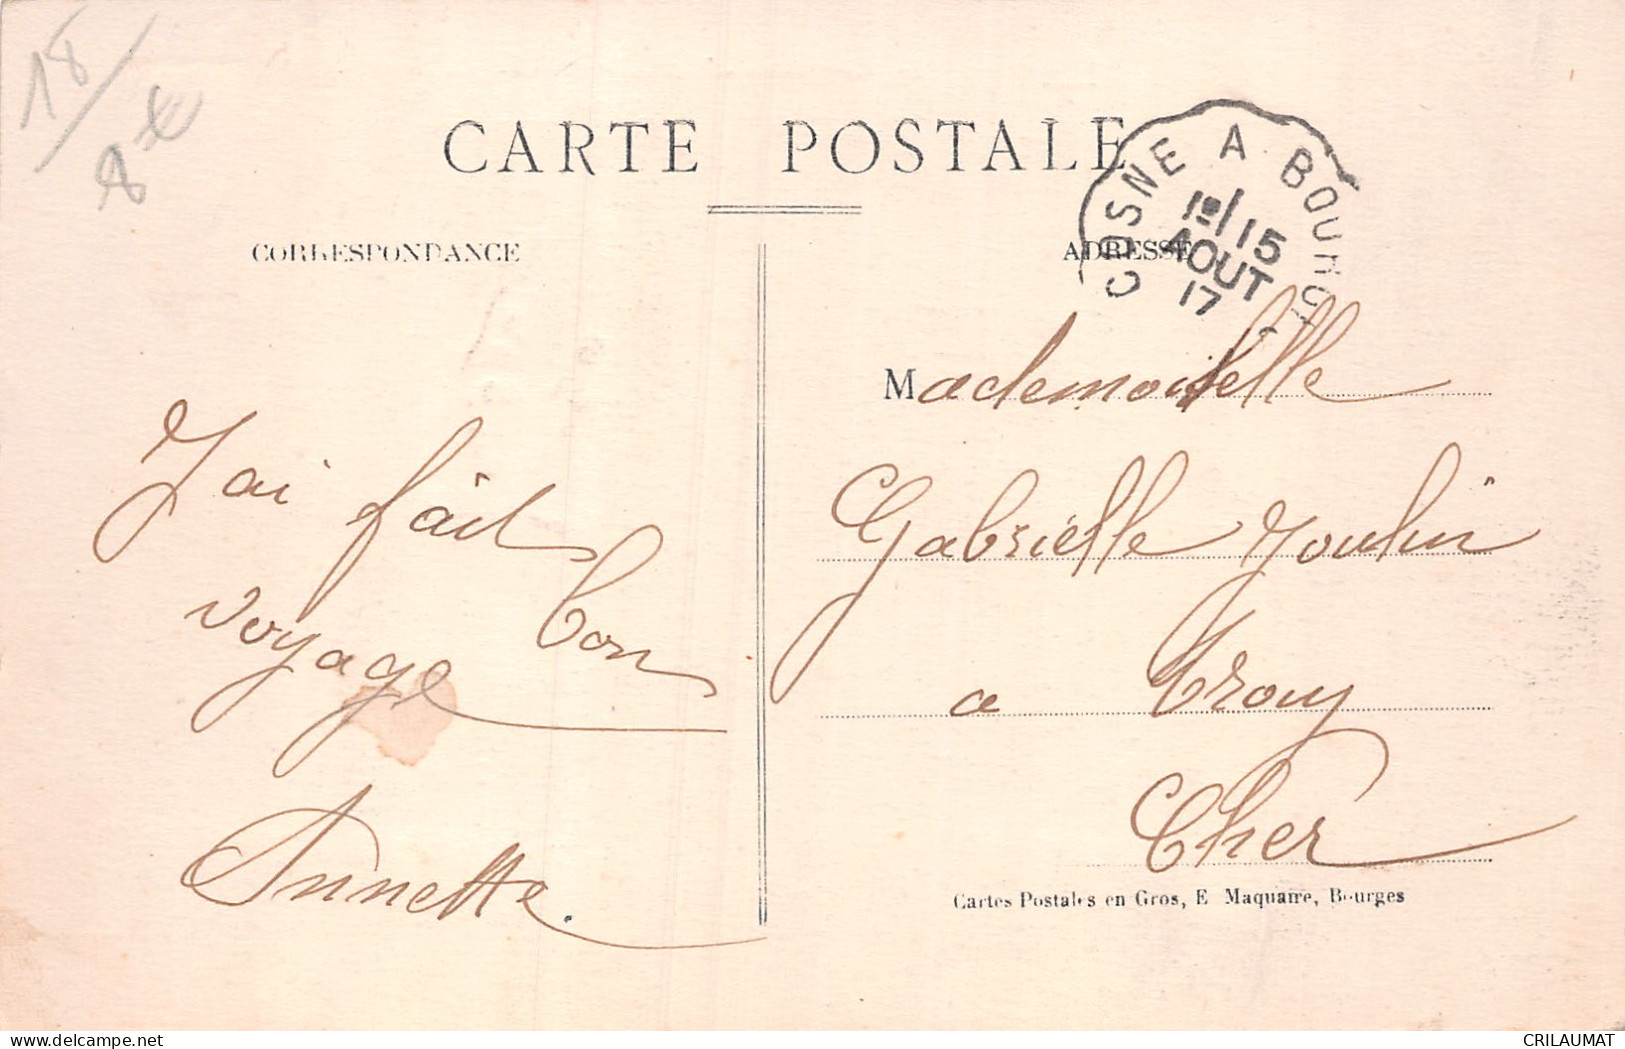 18/
8€
CARTE POSTALE
COSNE A BOURG
1º/15
AOUT
17
CORRESPONDANCE
ADRESSE
Mademoiselle
J'ai fait bon
voyage
Gabrielle Joulin
a Crouy
Cher
Annette.
Cartes Postales en Gros, E. Maquaire, Bourges
delcampe.net
CRILAUMAT